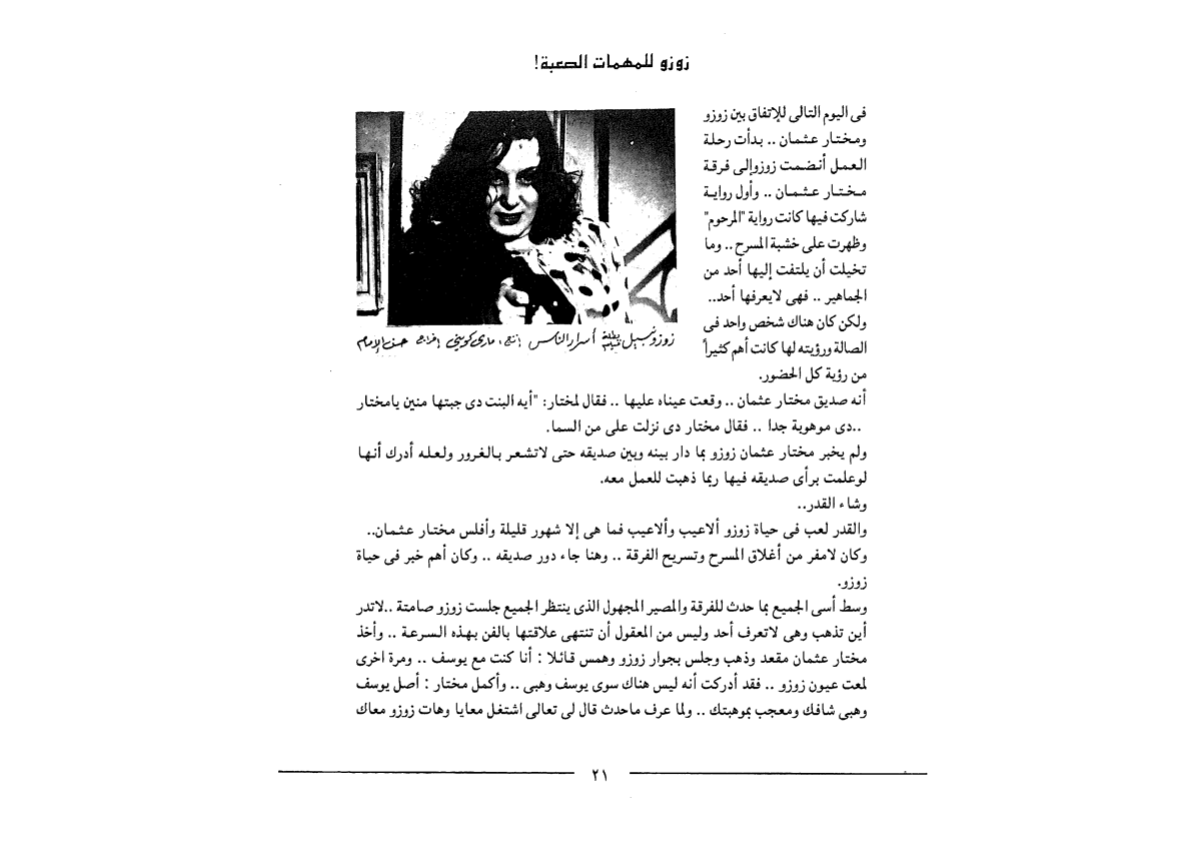 زوزو للمهمات الصعبة!
فى اليوم التالى للإتفاق بين زوزو
ومختار عثمان .. بدأت رحلة
العمل أنضمت زوزوإلى فرقة
مختار عثمان .. وأول رواية
شاركت فيها كانت رواية "المرحوم"
وظهرت على خشبة المسرح .. وما
تخيلت أن يلتفت إليها أحد من
الجماهير .. فهى لايعرفها أحد..
ولكن كان هناك شخص واحد فى
الصالة ورؤيته لها كانت أهم كثيراً
من رؤية كل الحضور.
زوزو نبيل بطلة فيلم أسرار الناس إنتاج: مارى كوينى إخراج حسن الإمام
أنه صديق مختار عثمان .. وقعت عيناه عليها .. فقال لمختار: "أيه البنت دى جبتها منين يامختار
..دى موهوبة جدا .. فقال مختار دى نزلت على من السما.
ولم يخبر مختار عثمان زوزو بما دار بينه وبين صديقه حتى لاتشعر بالغرور ولعله أدرك أنها
لوعلمت برأى صديقه فيها ربما ذهبت للعمل معه.
وشاء القدر..
والقدر لعب فى حياة زوزو ألاعيب وألاعيب فما هى إلا شهور قليلة وأفلس مختار عثمان..
وكان لامفر من أغلاق المسرح وتسريح الفرقة .. وهنا جاء دور صديقه .. وكان أهم خبر فى حياة
زوزو.
وسط أسى الجميع بما حدث للفرقة والمصير المجهول الذى ينتظر الجميع جلست زوزو صامتة ..لاتدر
أين تذهب وهى لاتعرف أحد وليس من المعقول أن تنتهى علاقتها بالفن بهذه السرعة .. وأخذ
مختار عثمان مقعد وذهب وجلس بجوار زوزو وهمس قائلا : أنا كنت مع يوسف .. ومرة اخرى
لمعت عيون زوزو .. فقد أدركت أنه ليس هناك سوى يوسف وهبى .. وأكمل مختار : أصل يوسف
وهبى شافك ومعجب بموهبتك .. ولما عرف ماحدث قال لى تعالى اشتغل معايا وهات زوزو معاك
٢١